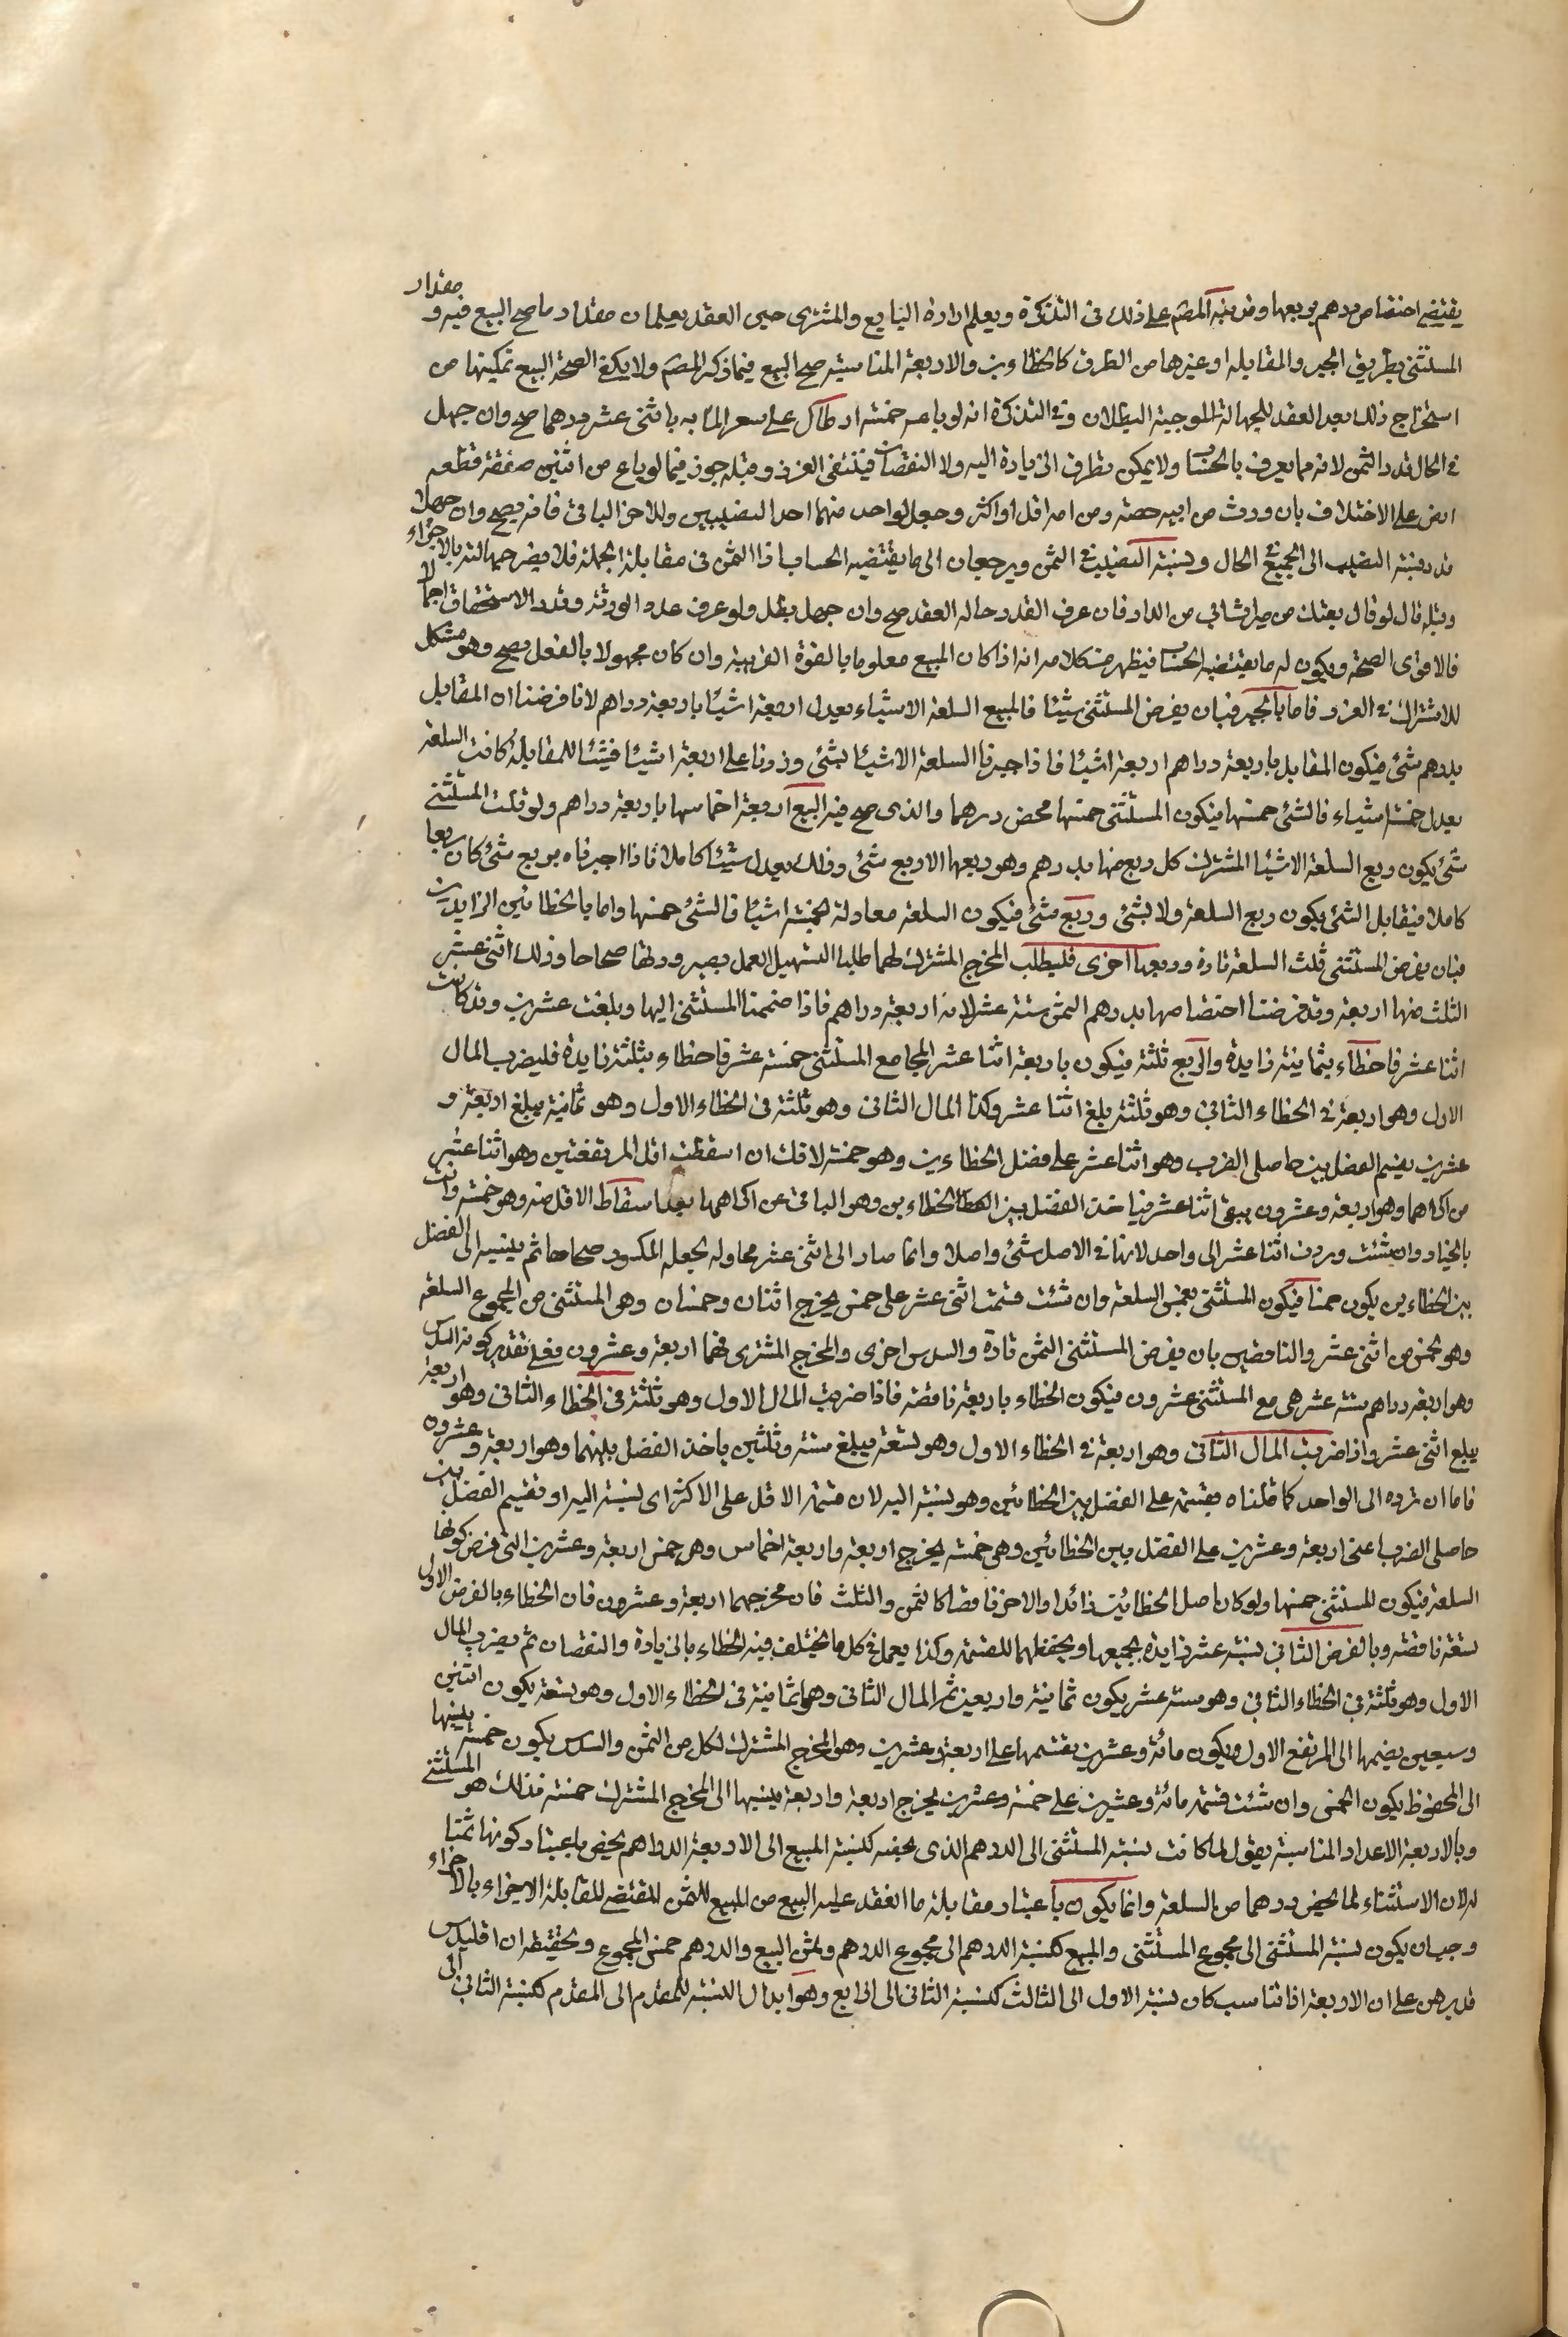 يقتضي اختصاص درهم بربعها وقد نبه المصر على ذلك في التذكرة ويعلم ارادة البايع والمشتري حين العقد يعلمان مقدار ما صح البيع فيه و مقدار
المستثنى بطريق الجبر والمقابلة او غيرها من الطرق كالخطاءين والاربعة المتناسبة صح البيع فيما ذكره المصر ولا يكفي لصحة البيع تمكينها من
استخراج ذلك بعد العقد للجهالة الموجبة البطلان وفي التذكرة انه لو باعه خمسة ارطال على سعر المائة باثني عشر درهما صح وان جهل
في الحال قدر الثمن لانه مما يعرف بالحساب ولا يمكن تطرق الزيادة اليه ولا النقصان فينتفي الغرر ومثله جوز فيما لو باع من اثنين صفقة قطعة
ارض على الاختلاف بان ورث من ابيه حصة ومن امه اقل او اكثر وجعل لواحد منهما احد النصيبين وللاخر الباقي فانه يصح وان جهلا
قدر نسبة النصيب الى الجميع في الحال ونسبة النصيب في الثمن ويرجعان الى ما يقتضيه الحساب اذا الثمن في مقابلة الجملة فلا يضر جهالته بالاجزاء
ومثله قال لو قال بعتك من ميراثا من الدار فان عرف القدر حالة العقد صح وان جهل بطل ولو عرف عدد الورثة وقدر الاستحقاق اجمالا
فالاقوى الصحة ويكون له ما يقتضيه الحساب فيظهر من كلامه انه اذا كان المبيع معلوما بالقوة القريبة وان كان مجهولا بالفعل يصح وهو مشكل
للاشتراك في الغرر فاما بالجبر فبان يفرض المستثنى شيئا فالمبيع السلعة الا شيئا يعدل اربعة اشيا باربعة دراهم لانا فرضنا ان المقابل
بدرهم شئ فيكون المقابل باربعة دراهم اربعة اشيا فاذا جبرنا السلعة الا شيئا بشئ وزدنا على اربعة اشيا شيئا للمقابلة كانت السلعة
يعدل خمسة اشياء فالشئ خمسها فيكون المستثنى خمسها محض درهما والذي صح فيه البيع اربعة اخماسها باربعة دراهم ولو قلت المستثنى
شئ يكون ربع السلعة الا شيئا المشترك كل ربع منها بدرهم وهو ربعها الا ربع شئ وذلك يعدل شيئا كاملا فاذا اجبرناه بربع شئ كان ربعا
كاملا فيقابل الشئ يكون ربع السلعة ولا بشئ وربع شئ فيكون السلعة معادلة لخمسة اشيا فالشئ خمسها واما بالخطائين الزايدين
فبان يفرض المستثنى ثلث السلعة تارة وربعها اخرى فليطلب المخرج المشترك لهما طلبا لتسهيل العمل بصيرورتها صحاحا وذلك اثنى عشر
الثلث منها اربعة وقد فرضنا اختصاصها بدرهم الثمن ستة عشر لانه اربعة دراهم فاذا ضممنا المستثنى اليها وبلغت عشرين وقد كانت
اثنا عشر فاخطاء بثمانية زايدة والربع ثلثة فيكون باربعة اثنا عشر المجامع المستثنى خمسة عشر فاخطاء بثلثة زايدة فليضرب المال
الاول وهو اربعة في الخطاء الثاني وهو ثلثة بلغ اثنا عشر وكذا المال الثاني وهو ثلثة في الخطاء الاول وهو ثمانية يبلغ اربعة و
عشرين يقسم الفضل بين حاصلي الضرب وهو اثنا عشر على فضل الخطاءين وهو خمسة لانك ان اسقطت اقل المرتفعين وهو اثنا عشر
من اكثرهما وهو اربعة وعشرون يبقى اثنا عشر فياخذ الفضل بين الخطاءين وهو الباقي عن اكثرهما بعد اسقاط الاقل منه وهو خمسة وانت
بالخيار وان شئت رددت اثنا عشر الى واحد لانها في الاصل شئ واصلا وانما صار الى اثنى عشر محاوله لجعل المكسور صحاحا ثم ينسبه الى الفضل
بين الخطاءين يكون خمسا فيكون المستثنى بخمس السلعة وان شئت قسمت اثنى عشر على خمس يخرج اثنان وخمسان وهي المستثنى من المجموع السلعة
وهو خمس من اثنى عشر والناقصين بان يفرض المستثنى الثمن تارة والسدس اخرى والمخرج المشترى فهما اربعة وعشرون فعلى تقدير كونه السدس
وهو اربعة دراهم ستة عشر هي مع المستثنى عشرون فيكون الخطاء باربعة ناقصة فاذا ضربت المال الاول وهو ثلثة في الخطاء الثاني وهو اربعة
يبلغ اثنى عشر واذا ضربت المال الثاني وهو اربعة في الخطاء الاول وهو تسعة فيبلغ ستة وثلثين ياخذ الفضل بينهما وهو اربعة وعشرون
فاما ان ترده الى الواحد كما قلناه يقسمه على الفضل بين الخطائين وهو نسبته اليه لان قسمة الاقل على الاكثر اى نسبته اليه او تقسيم الفضل بين
حاصلى الضرب اعنى اربعة وعشرين على الفضل بين الخطائين وهي خمسة يخرج اربعة واربعة اخماس وهي خمس اربعة وعشرين التي فرض كونها
السلعة فيكون المستثنى خمسها ولو كان احد الخطائين زائدا والاخر ناقصا كالثمن والثلث فان مخرجهما اربعة وعشرون فان الخطاء بالفرض الاول
تسعة ناقصة وبالفرض الثاني ستة عشر زايدة يجمعها ويحفظهما للقسمة وكذا يعمل في كل ما يختلف فيه الخطاء بالزيادة والنقصان ثم يضرب المال
الاول وهو ثلثة في الخطاء الثاني وهو ستة عشر يكون ثمانية واربعين ثم المال الثاني وهو ثمانية في الخطاء الاول وهو تسعة يكون اثنين
وسبعين يضمها الى المرتفع الاول ويكون مائة وعشرين يقسمها على اربعة وعشرين وهو المخرج المشترك لكل من الثمن والسدس يكون خمسة ينسبها
الى المحفوظ يكون الخمس وان شئت قسمة مائة وعشرين على خمسة وعشرين يخرج اربعة واربعة ينسبها الى المخرج المشترك خمسة فذلك هو المستثنى
وبالاربعة الاعداد المتناسبة يقول لما كانت نسبة المستثنى الى الدرهم الذي يخصه كنسبة المبيع الى الاربعة الدراهم يخص باعتبار كونها ثمنا
له لان الاستثناء لما يخص درهما من السلعة وانما يكون باعتبار مقابلة ما انعقد عليه البيع من المبيع للثمن المقتضي للمقابلة الاجزاء بالاجزاء
وجب ان يكون نسبة المستثنى الى مجموع المستثنى والمبيع كنسبة الدرهم الى مجموع الدرهم وثمن البيع والدرهم خمس المجموع وتحقيقه ان اقليدس
قد برهن على ان الاربعة اذا تناسب كان نسبة الاول الى الثالث كنسبة الثاني الى الرابع وهو ابدال النسبة للمقدم الى المقدم كنسبة الثاني الى